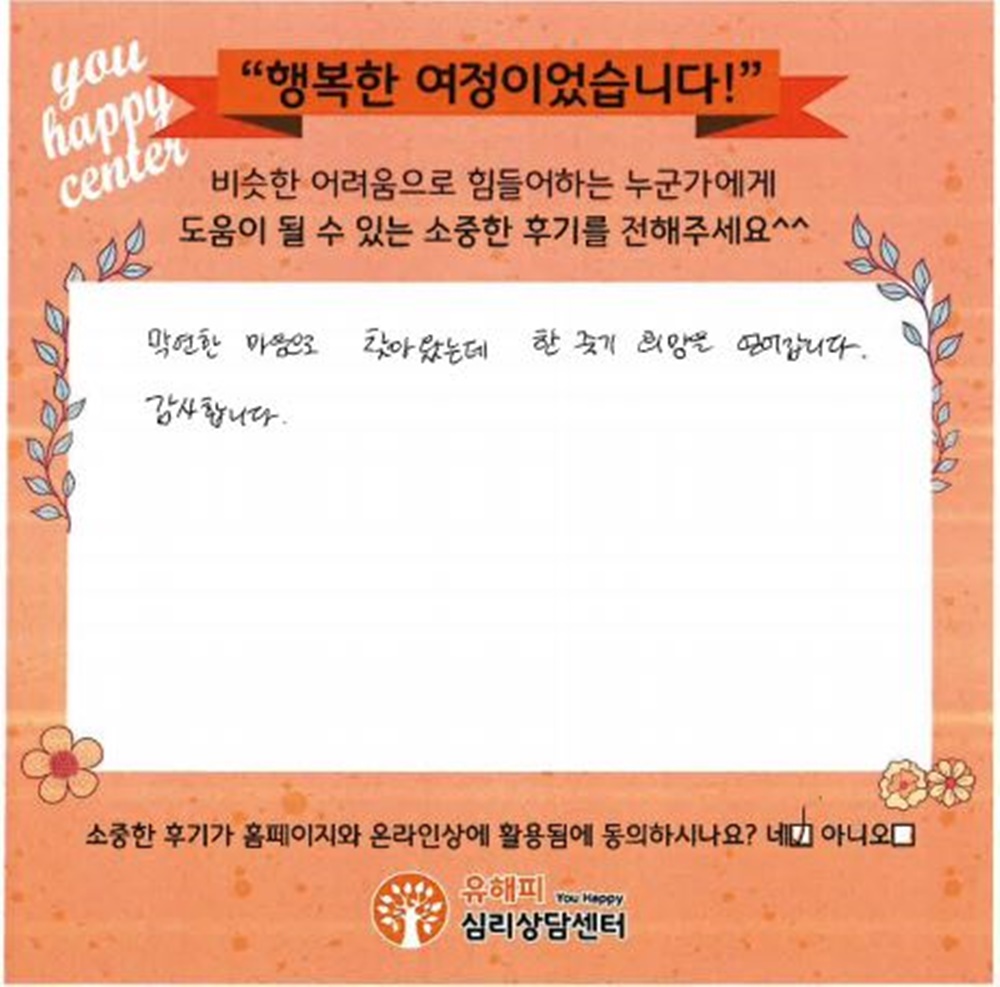 you
happy
center
“행복한 여정이었습니다!”
비슷한 어려움으로 힘들어하는 누군가에게
도움이 될 수 있는 소중한 후기를 전해주세요^^
막연한 마음으로 찾아왔는데 한 줄기 희망을 얻어갑니다.
감사합니다.
소중한 후기가 홈페이지와 온라인상에 활용됨에 동의하시나요? 네 아니오
유해피 You Happy
심리상담센터